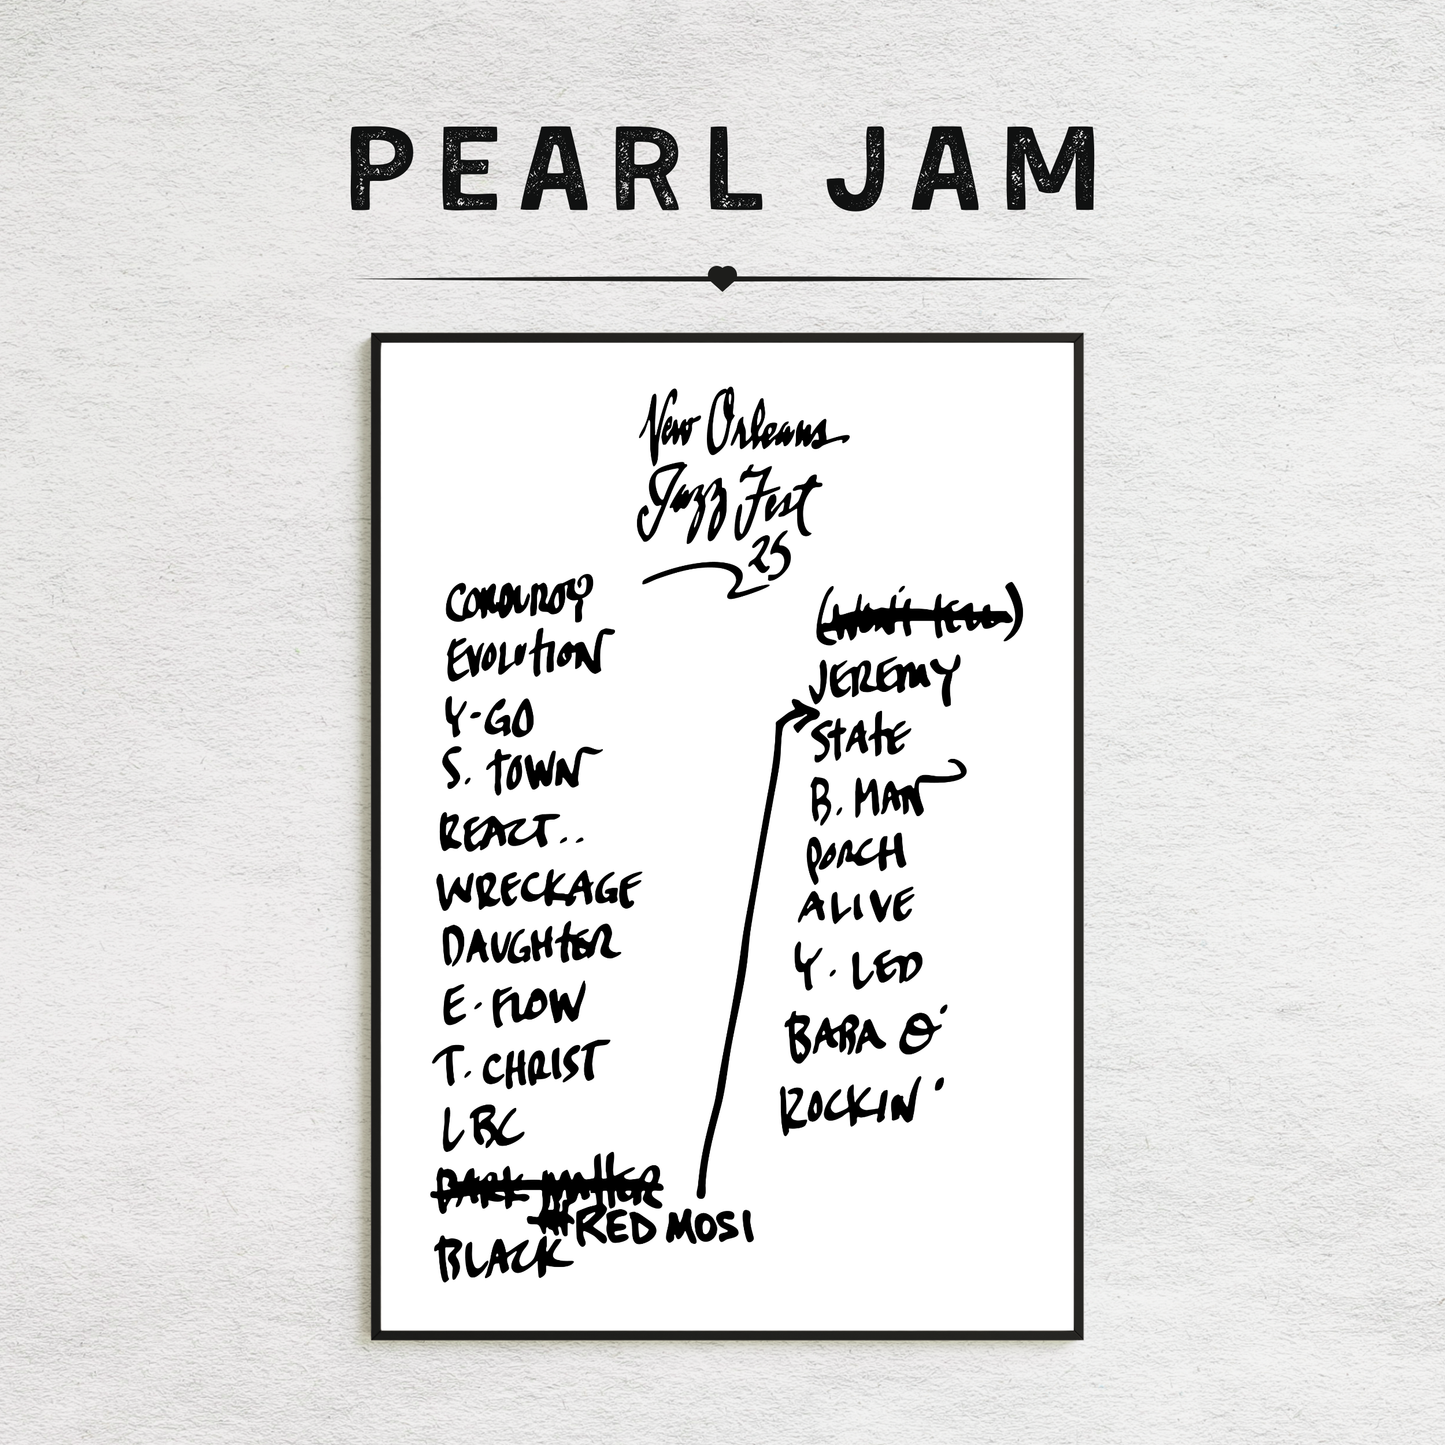 PEARL JAM
New Orleans
Jazz Fest
25
CORDUROY
EVOLUTION
Y-GO
S. TOWN
REACT..
WRECKAGE
DAUGHTER
E-FLOW
T. CHRIST
LBC
DARK MATTER
RED MOSI
BLACK
(WON'T TELL)
JEREMY
STATE
B. MAN
PORCH
ALIVE
Y. LED
BABA O'
ROCKIN'